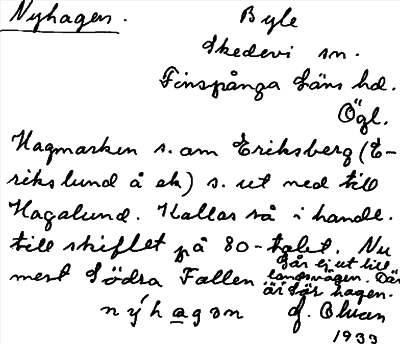 Nyhagen.
Byle
Skedevi sn.
Finspånga läns hd.
Ögl.
Hagmarken s. om Eriksberg (E-
rikslund å ek) s. ut ned till
Hagalund. Kallas så i handl.
till skiftet på 80-talet. Nu
mest Södra Fallen
Går ej ut till
landsvägen. Där
är Sör hagen.
nýhagən
1933